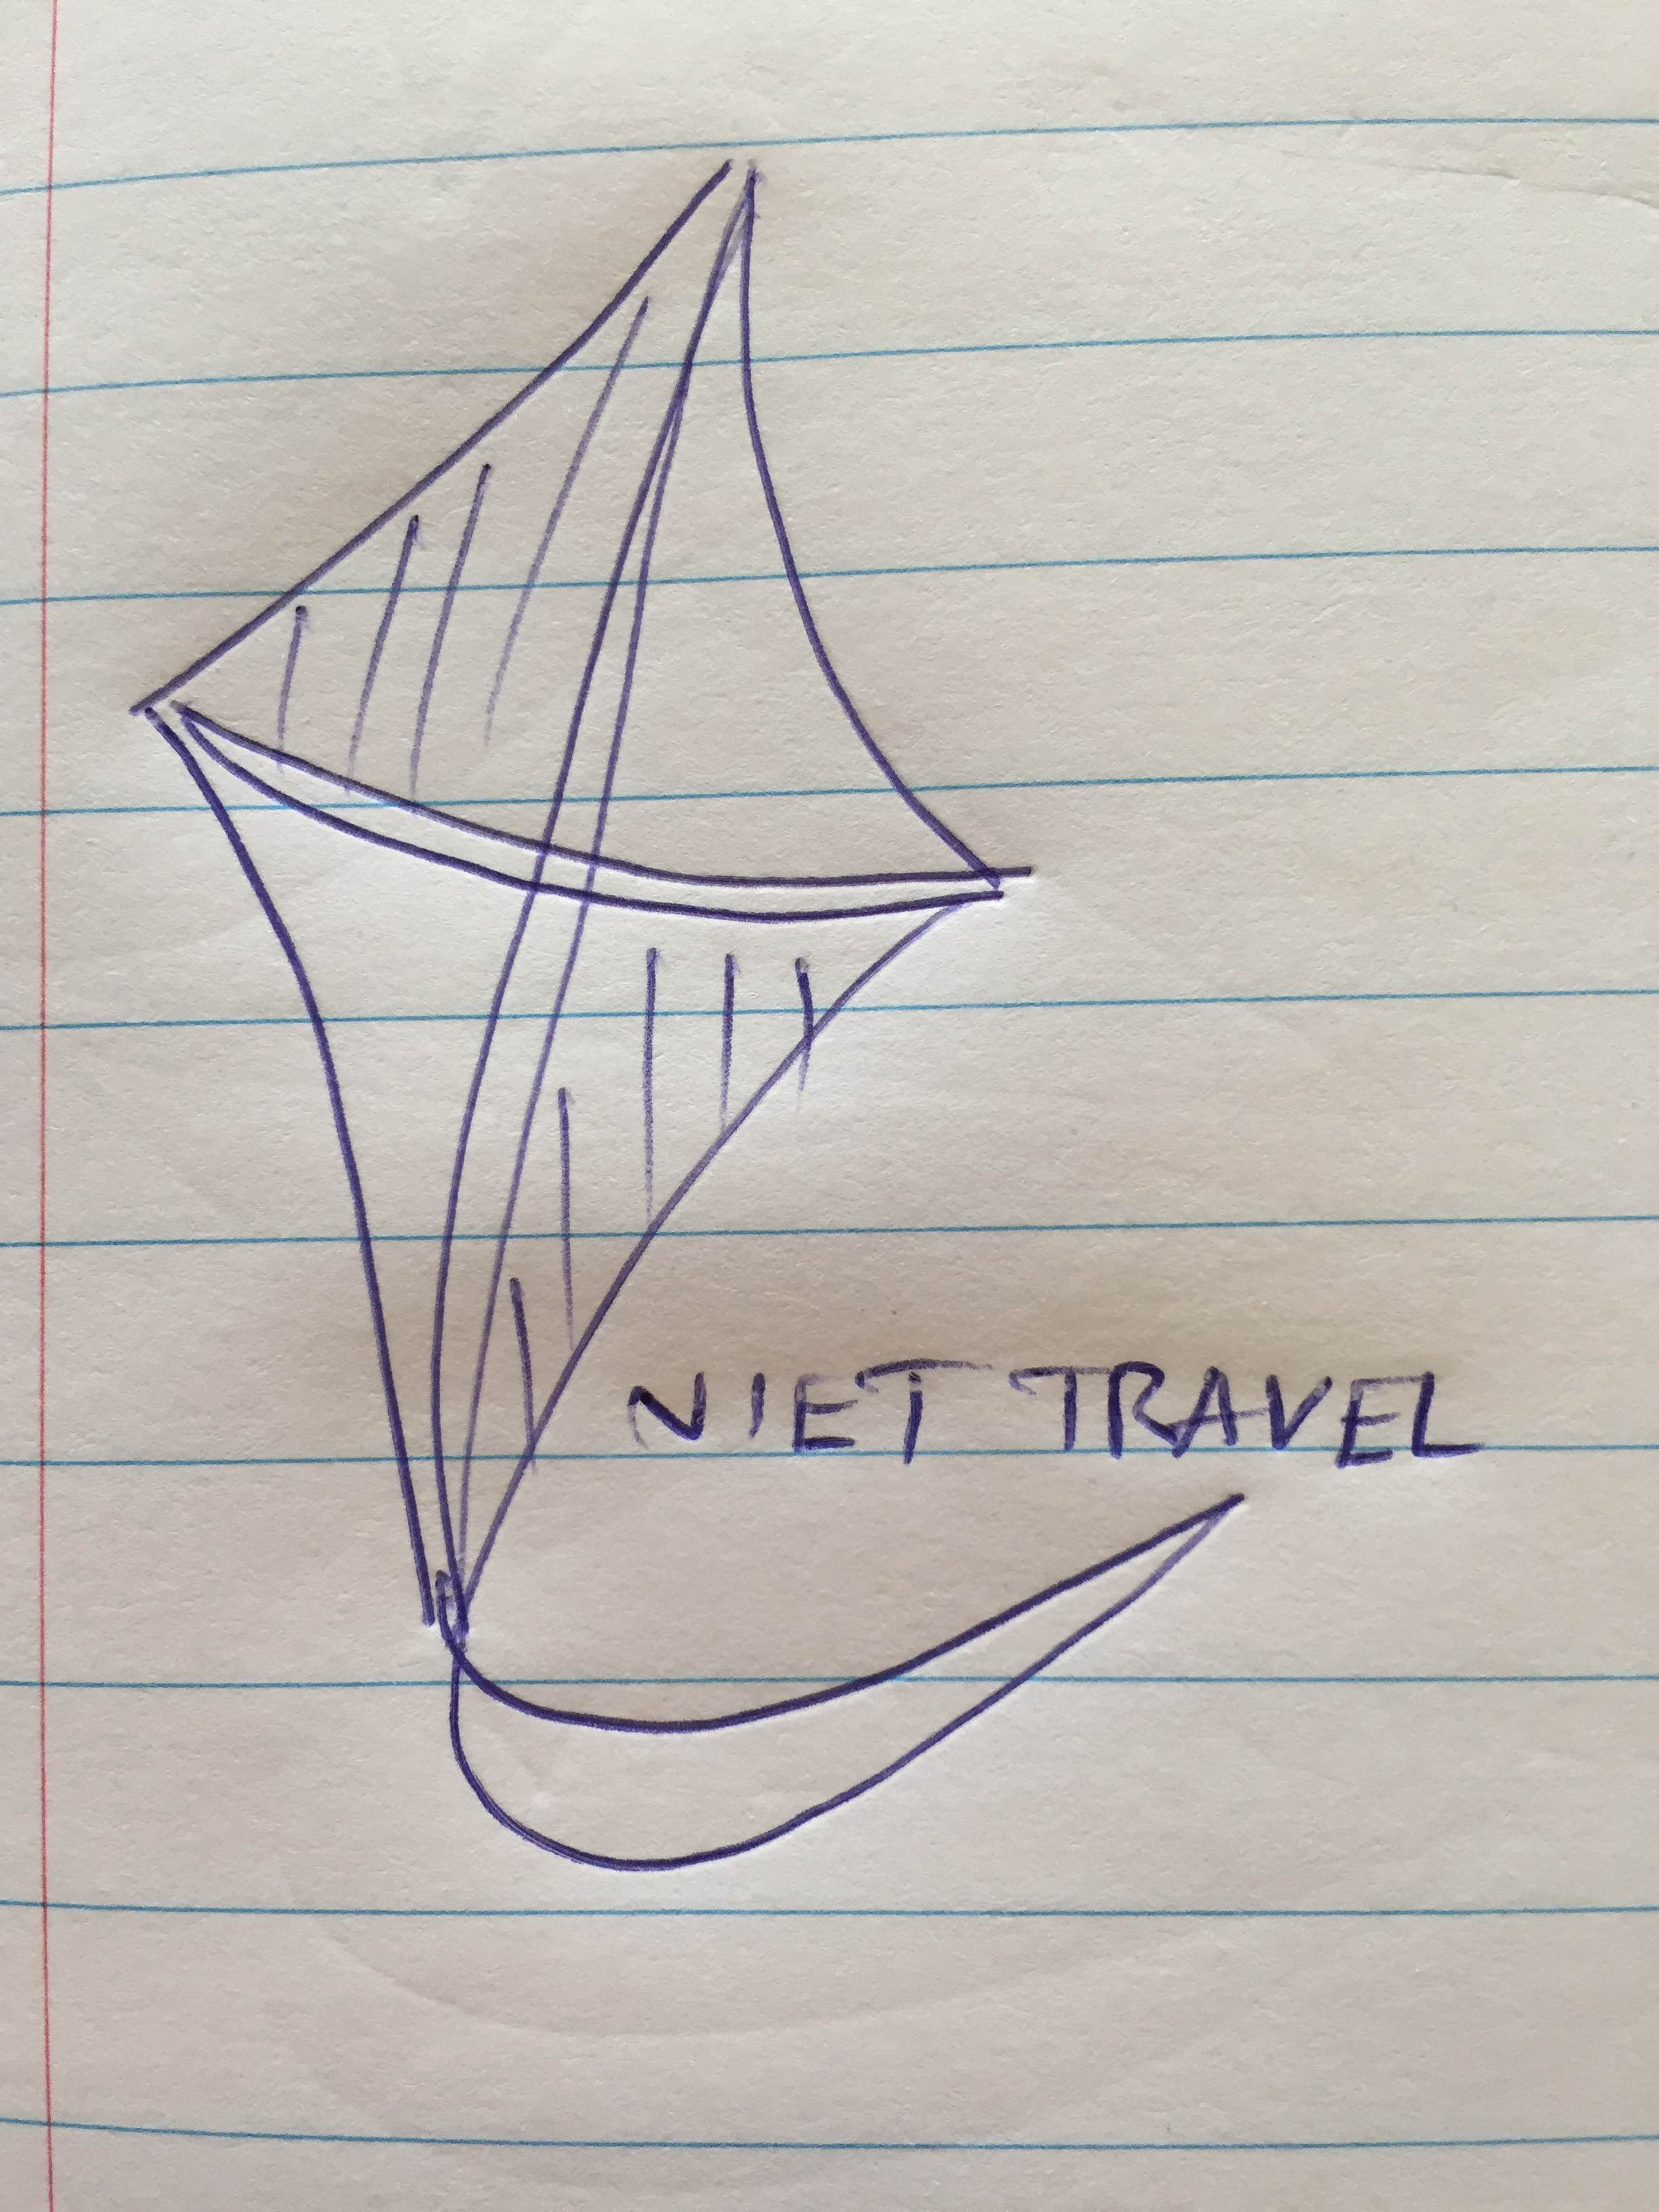 NIET TRAVEL